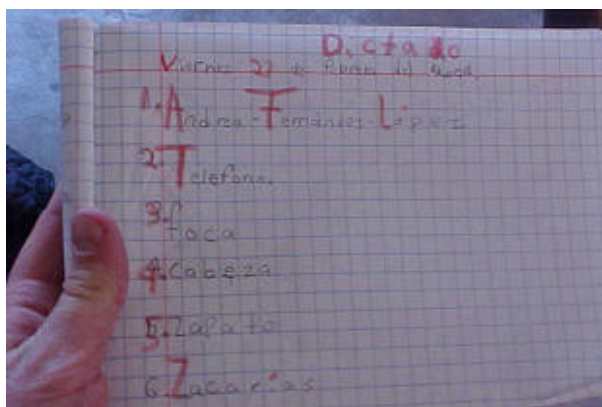 Dictado
Viernes 27 de febrero del
1. Andrea Fernández López
2. Telefono.
3. foca
4. Cabeza
5. Zapato
6. Zacarías